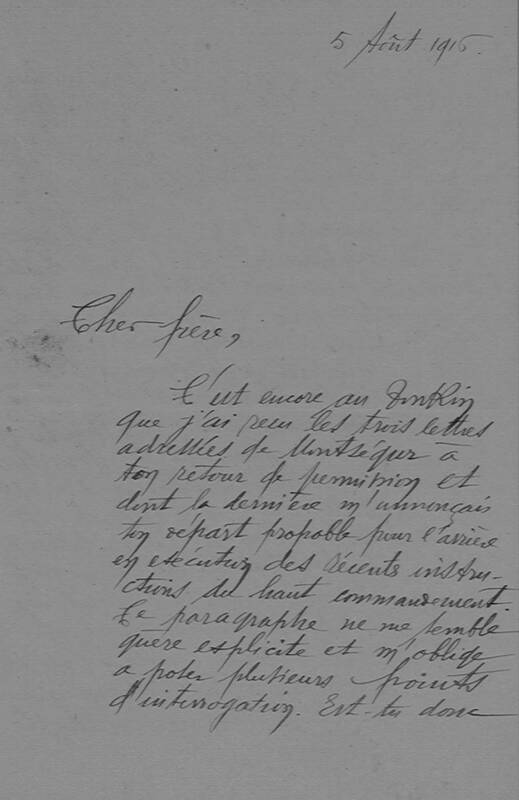 5 Août 1916.
Cher frère,
C'est encore au Tonkin
que j'ai reçu les trois lettres
adressées de Montségur à
ton retour de permission et
dont la dernière m'annonçais
ton départ propable pour l'arrière
en exécution des récents instru-
ctions du haut commandement.
Ce paragraphe ne me semble
guère explicite et m'oblige
a poser plusieurs points
d'interrogation. Est-tu donc